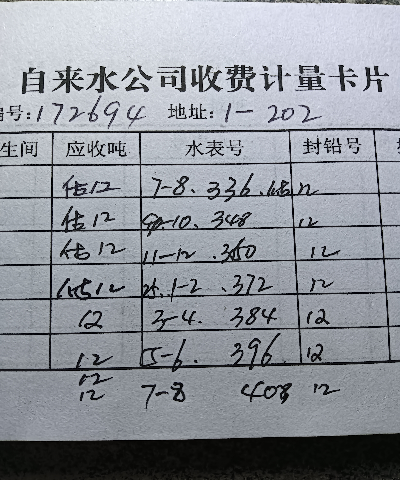 自来水公司收费计量卡片
编号:172694 地址:1-202
生间 应收吨 水表号 封铅号
估12 7-8. 336. 估12
估12 9-10. 348 12
估12 11-12. 360 12
估12 25.1-2. 372 12
12 3-4. 384 12
12 5-6. 396. 12
12
12 7-8 408 12